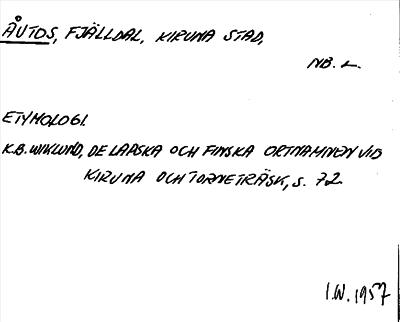 ÅUTOS, FJÄLLDAL, KIRUNA STAD,
NB. L.
ETYMOLOGI.
K.B. WIKLUND, DE LAPSKA OCH FINSKA ORTNAMNEN VID
KIRUNA OCH TORNETRÄSK, S. 72
I.W. 1957